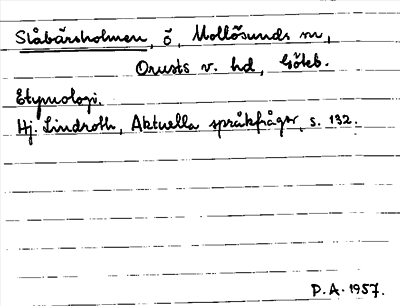 Slåbärsholmen, ö, Mollösunds sn,
Orusts v. hd, Göteb.
Etymologi.
Hj. Lindroth, Aktuella språkfrågor, s. 132.
P.A. 1957.